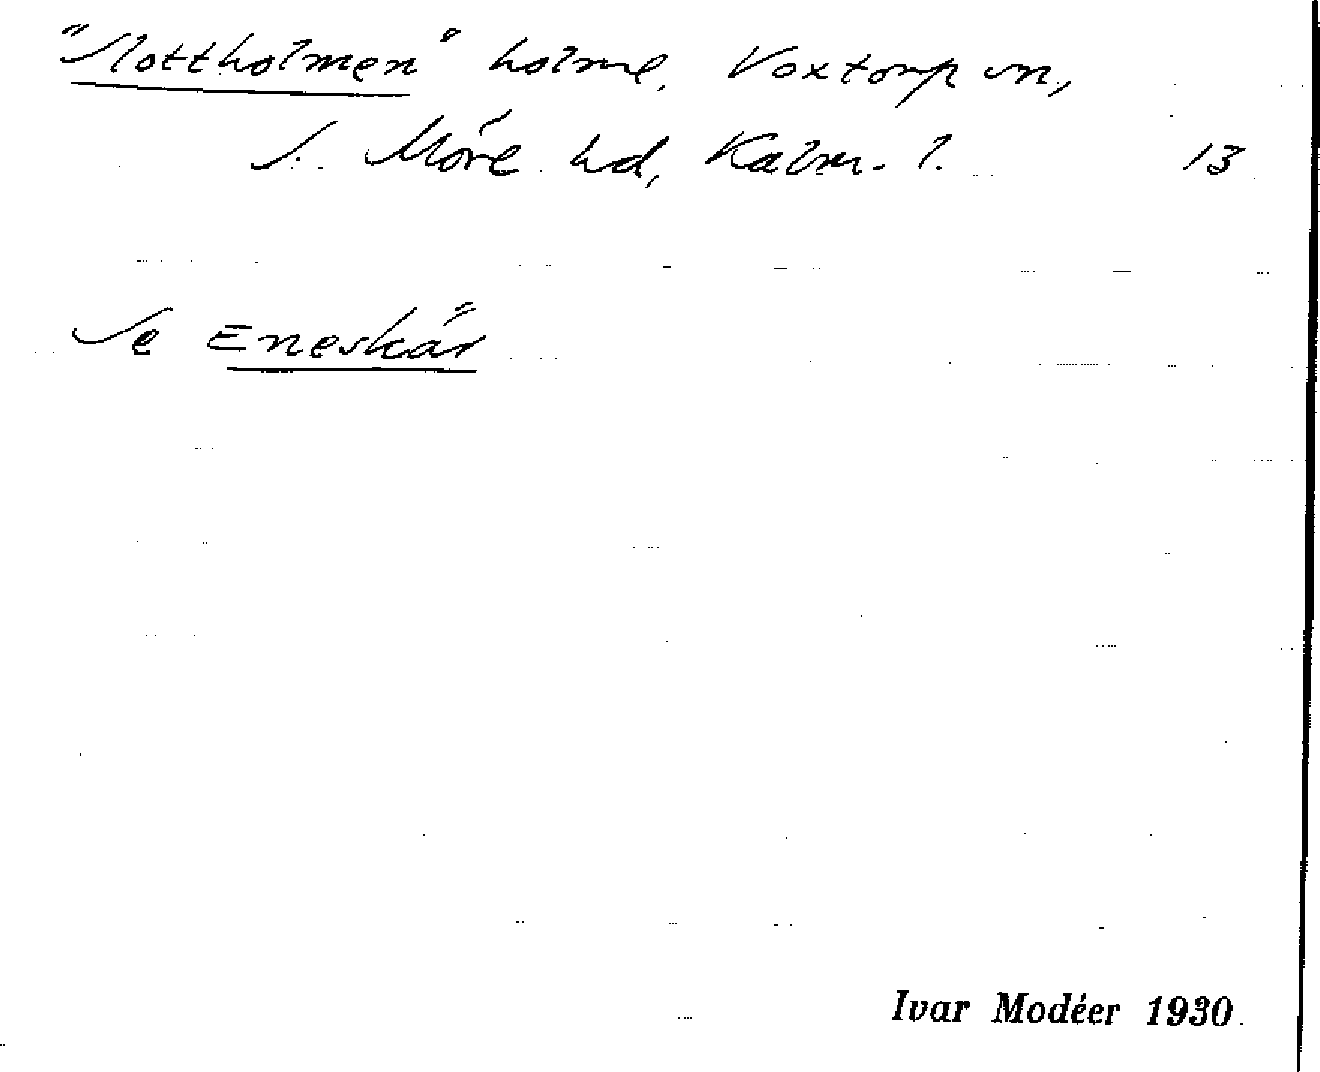 "Slottholmen" holme, Voxtorp sn,
S. Möre hd, Kalm. l. 13
Se Eneskär
Ivar Modéer 1930